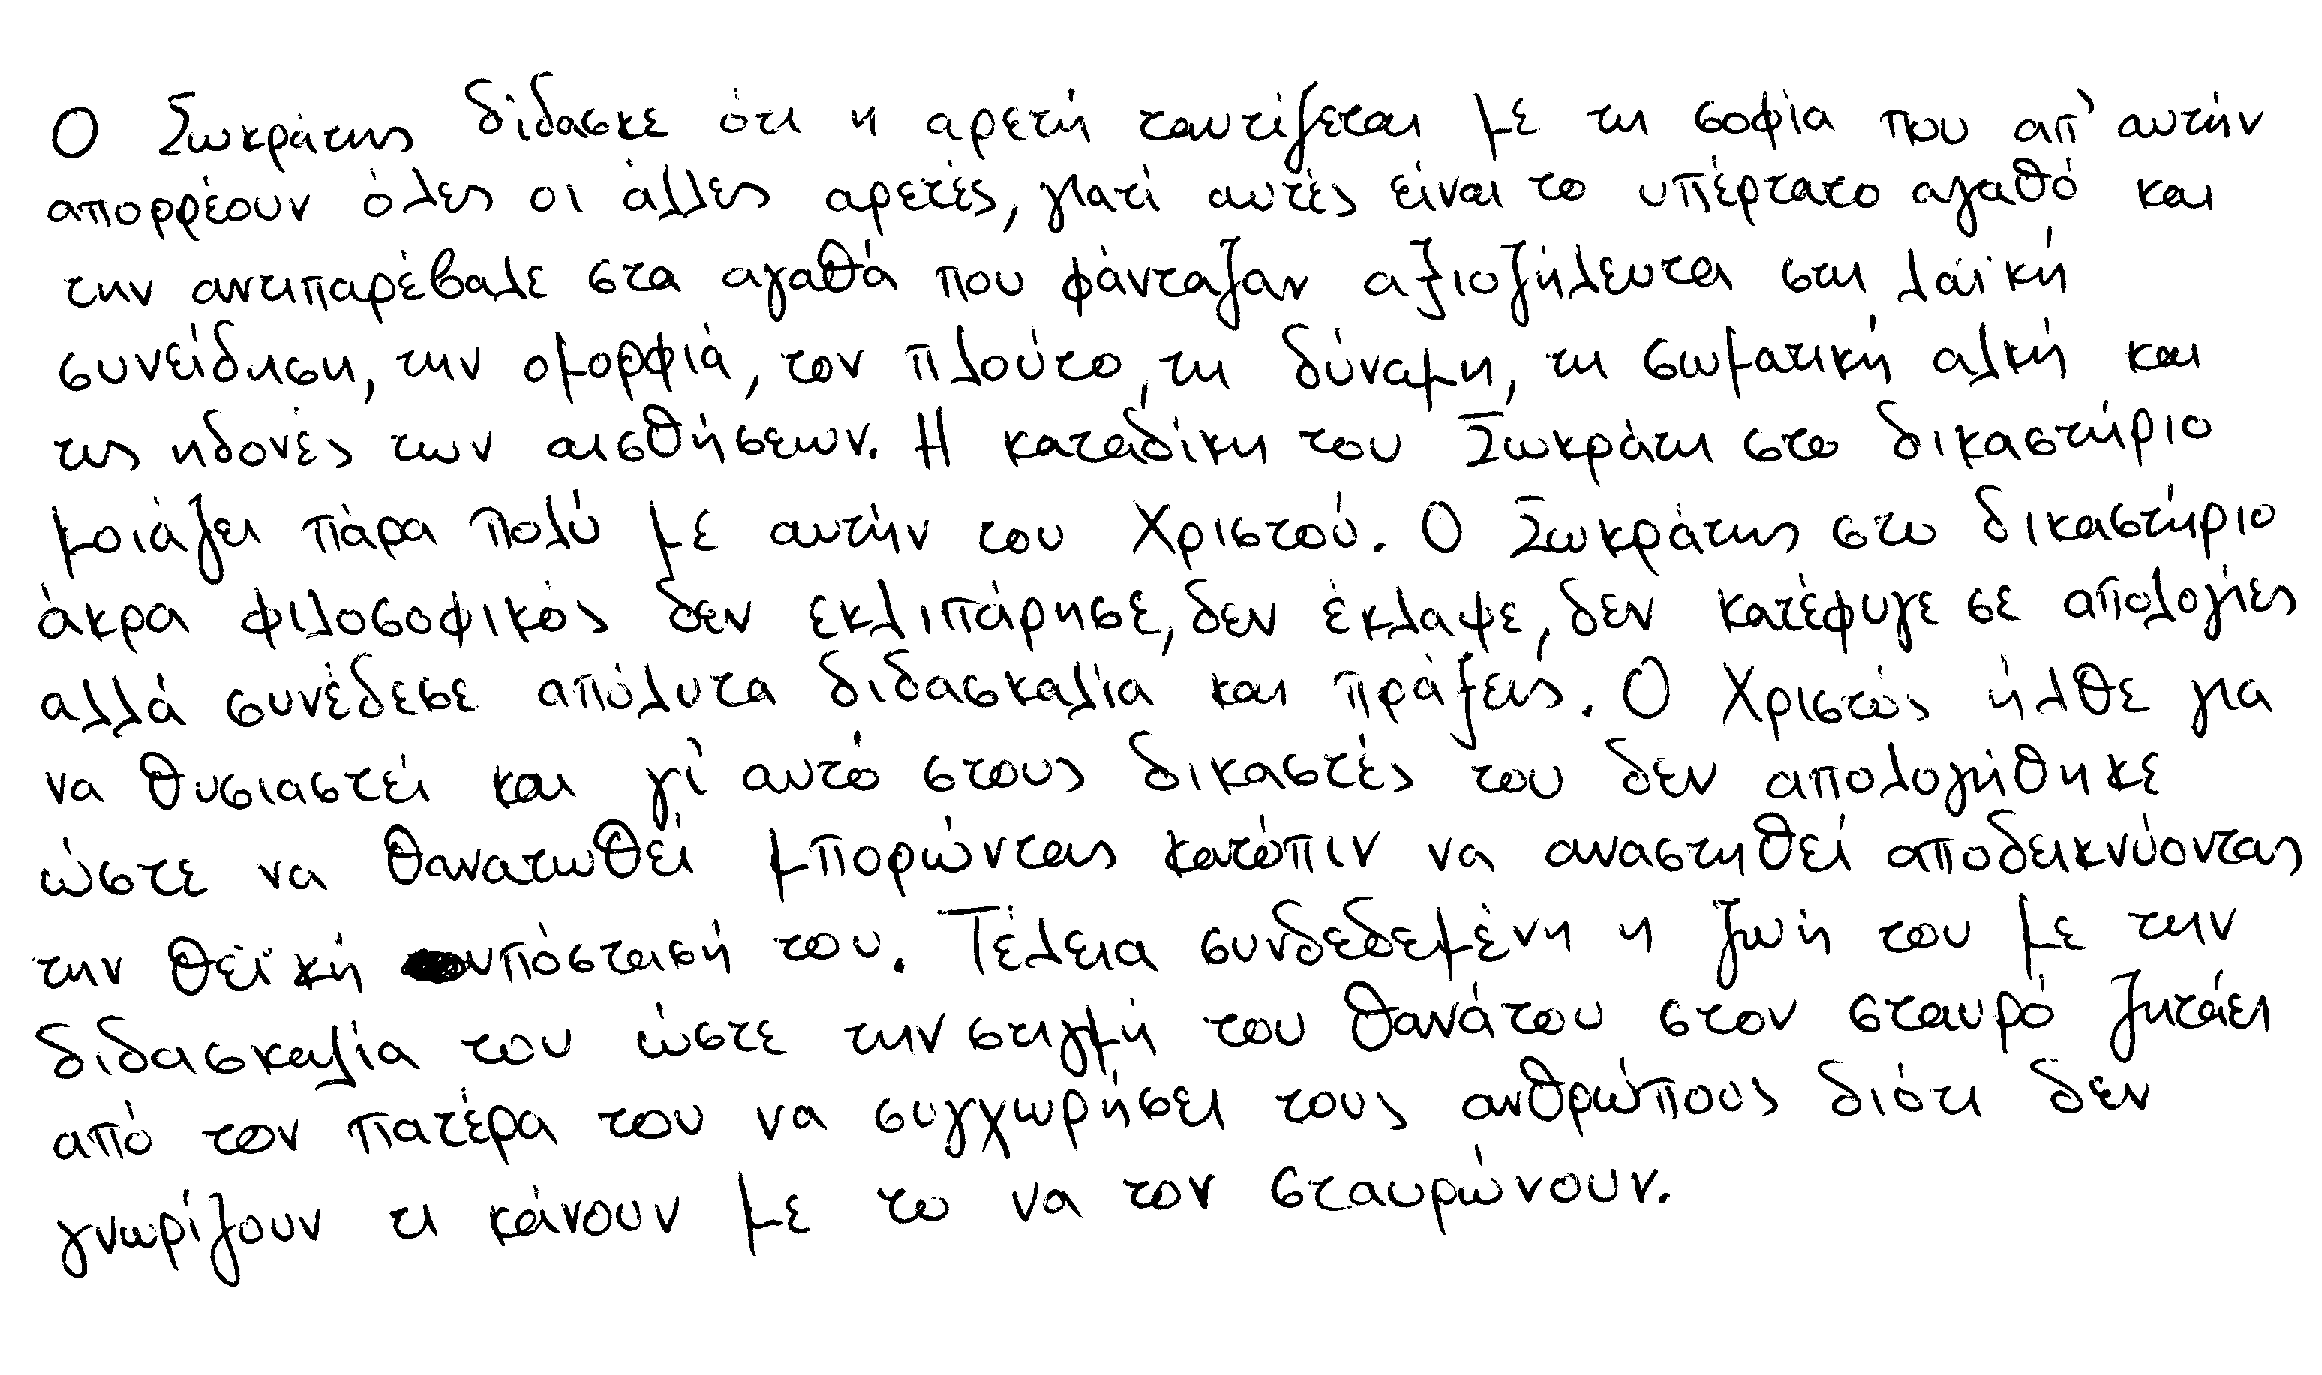 Ο Σωκράτης δίδασκε ότι η αρετή ταυτίζεται με τη σοφία που απ' αυτήν
απορρέουν όλες οι άλλες αρετές, γιατί αυτές είναι το υπέρτατο αγαθό και
την αντιπαρέβαλε στα αγαθά που φάνταζαν αξιοζήλευτα στη λαϊκή
συνείδηση, την ομορφιά, τον πλούτο, τη δύναμη, τη σωματική αλκή και
τις ηδονές των αισθήσεων. Η καταδίκη του Σωκράτη στο δικαστήριο
μοιάζει πάρα πολύ με αυτήν του Χριστού. Ο Σωκράτης στο δικαστήριο
άκρα φιλοσοφικός δεν εκλιπάρησε, δεν έκλαψε, δεν κατέφυγε σε απολογίες
αλλά συνέδεσε απόλυτα διδασκαλία και πράξεις. Ο Χριστός ήλθε για
να θυσιαστεί και γι' αυτό στους δικαστές του δεν απολογήθηκε
ώστε να θανατωθεί μπορώντας κατόπιν να αναστηθεί αποδεικνύοντας
την θεϊκή υπόστασή του. Τέλεια συνδεδεμένη η ζωή του με την
διδασκαλία του ώστε την στιγμή του θανάτου στον σταυρό ζητάει
από τον πατέρα του να συγχωρήσει τους ανθρώπους διότι δεν
γνωρίζουν τι κάνουν με το να τον σταυρώνουν.